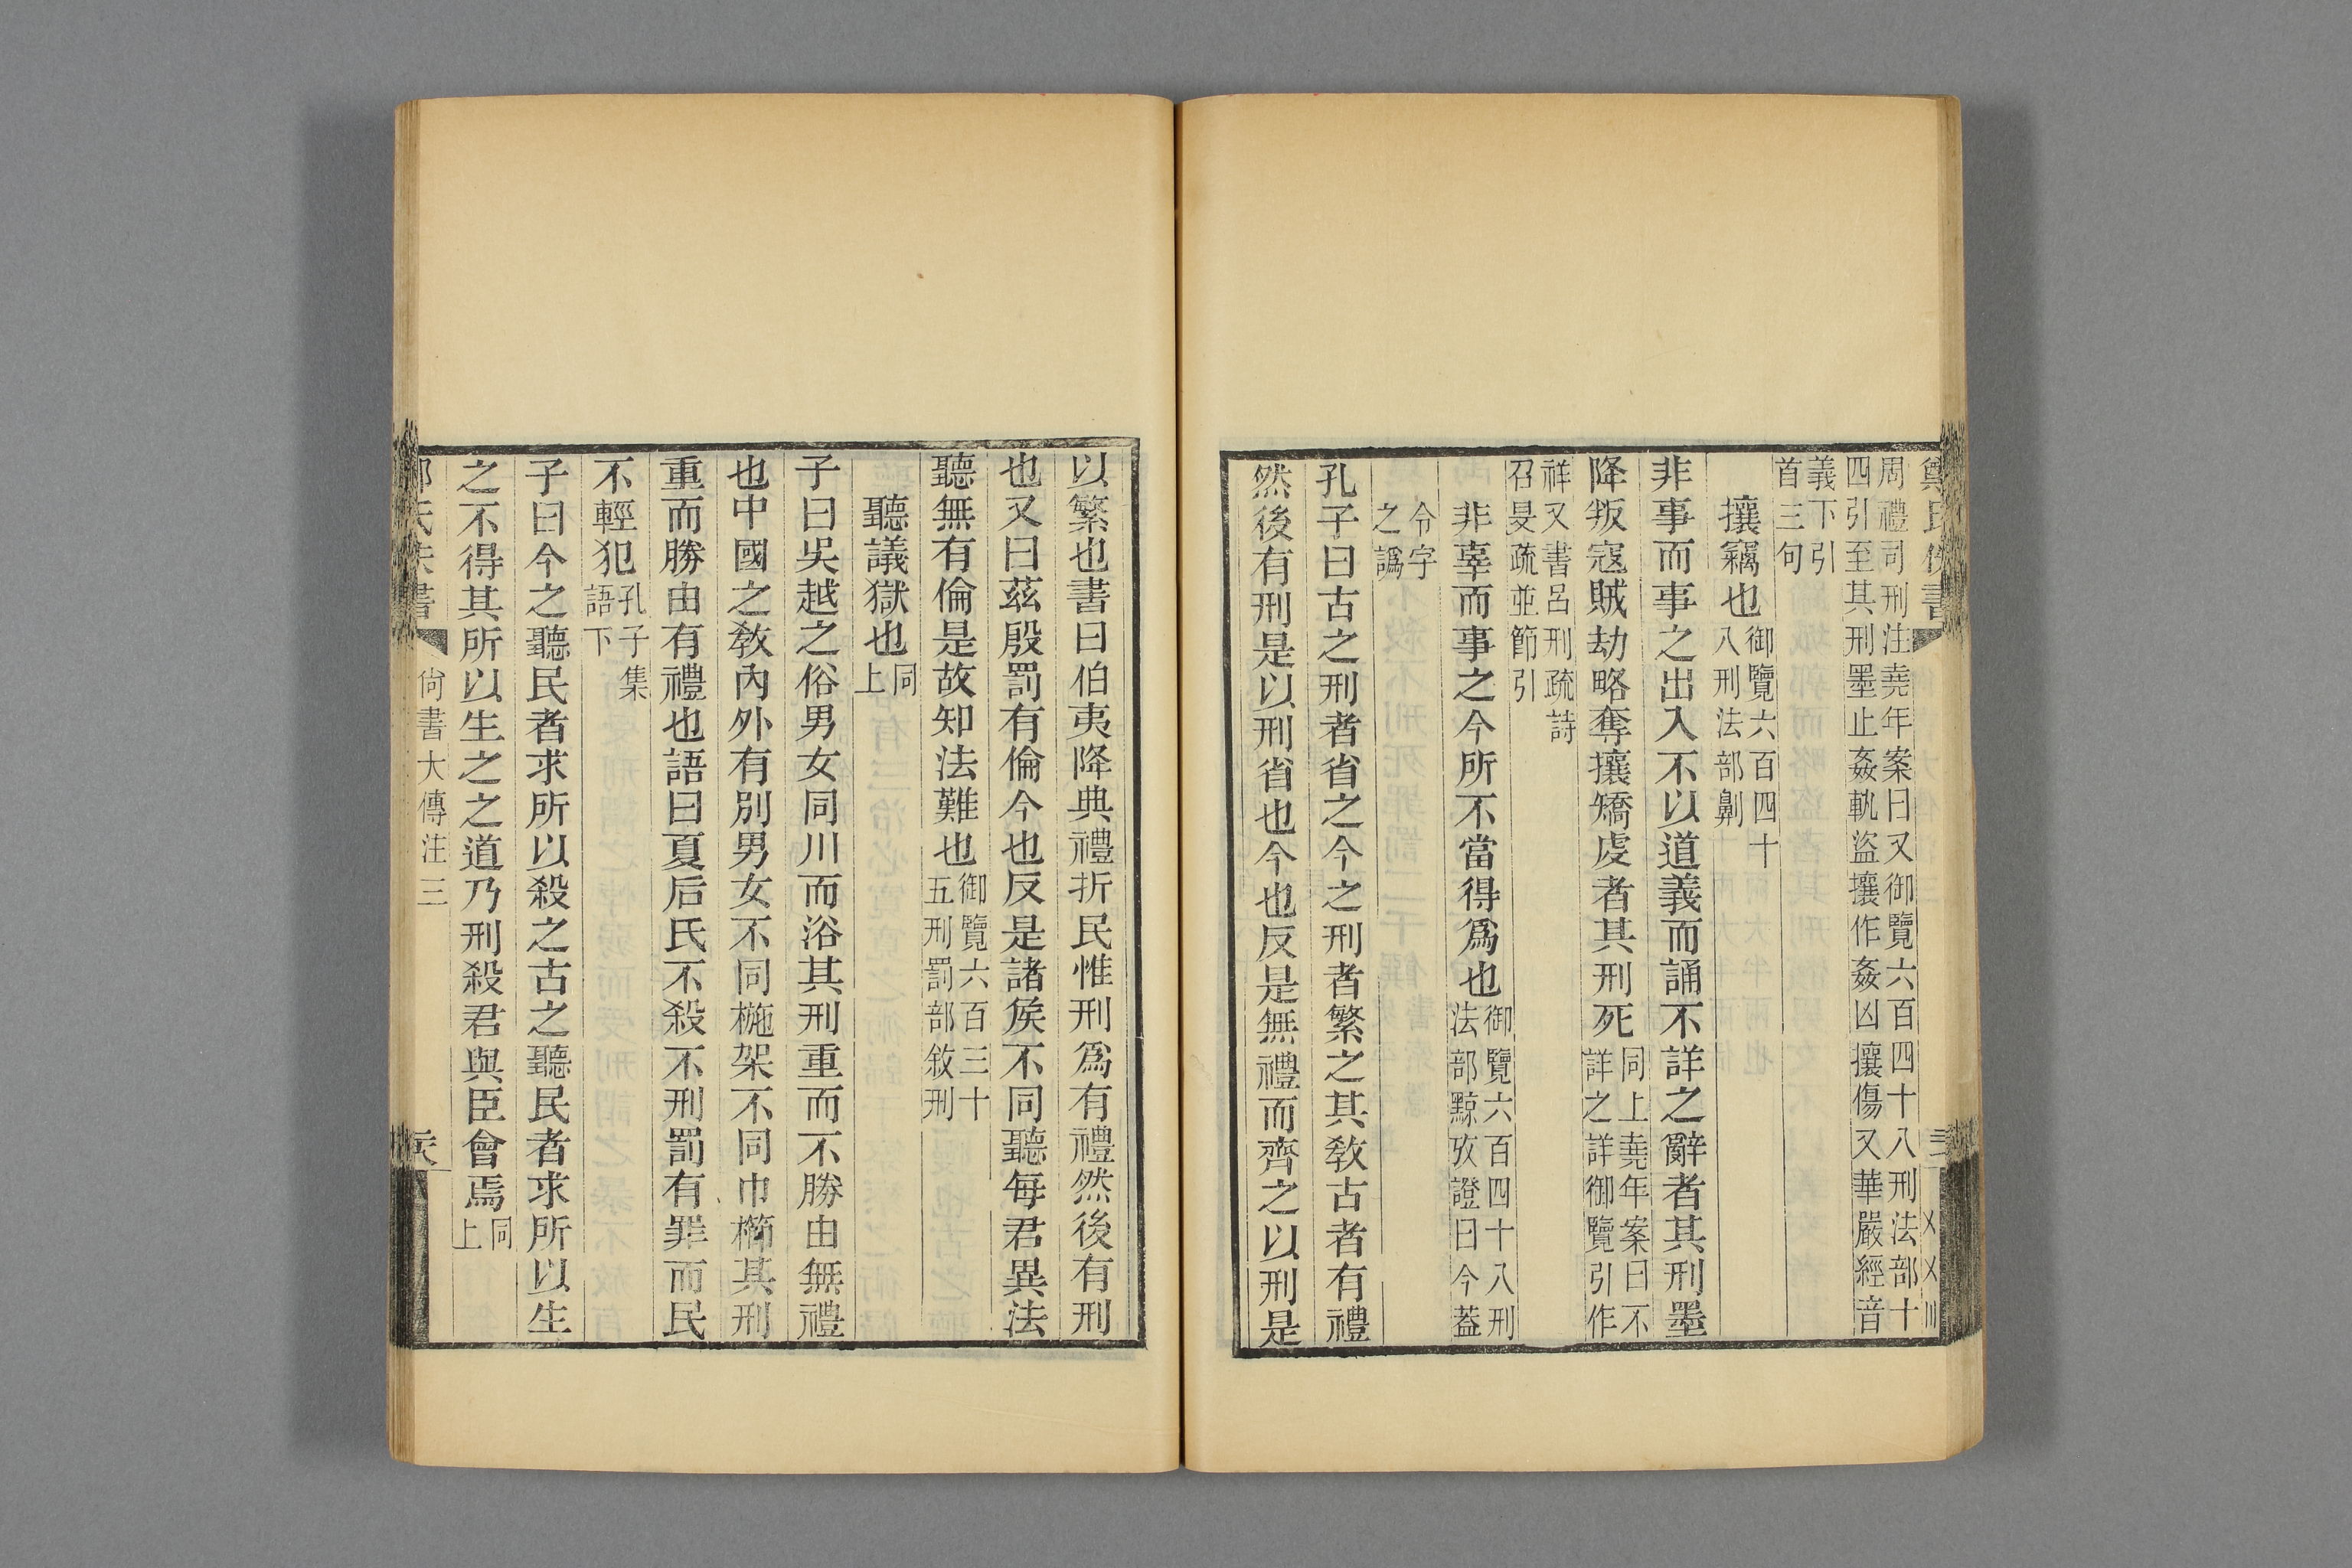 鄭氏佚書
周禮司刑注堯年案曰又御覽六百四十八刑法部十
四引至其刑墨止姦軌盜攘作姦凶攘傷又華嚴經音
義下引
首三句
攘竊也御覽六百四十
八刑法部劓
非事而事之出入不以道義而誦不詳之辭者其刑墨
降叛寇賊劫略奪攘矯虔者其刑死同上堯年案曰不
詳之詳御覽引作
祥又書呂刑疏詩
召旻疏並節引
非辜而事之今所不當得爲也御覽六百四十八刑
法部黥攷證曰今蓋
令字
之譌
孔子曰古之刑者省之今之刑者繁之其敎古者有禮
然後有刑是以刑省也今也反是無禮而齊之以刑是
以繁也書曰伯夷降典禮折民惟刑爲有禮然後有刑
也又曰茲殷罰有倫今也反是諸矦不同聽每君異法
聽無有倫是故知法難也御覽六百三十
五刑罰部敘刑
聽議獄也同
上
子曰吳越之俗男女同川而浴其刑重而不勝由無禮
也中國之敎內外有別男女不同椸架不同巾櫛其刑
重而勝由有禮也語曰夏后氏不殺不刑罰有罪而民
不輕犯孔子集
語下
子曰今之聽民者求所以殺之古之聽民者求所以生
之不得其所以生之之道乃刑殺君與臣會焉同
上
氏佚書 尙書大傳注三